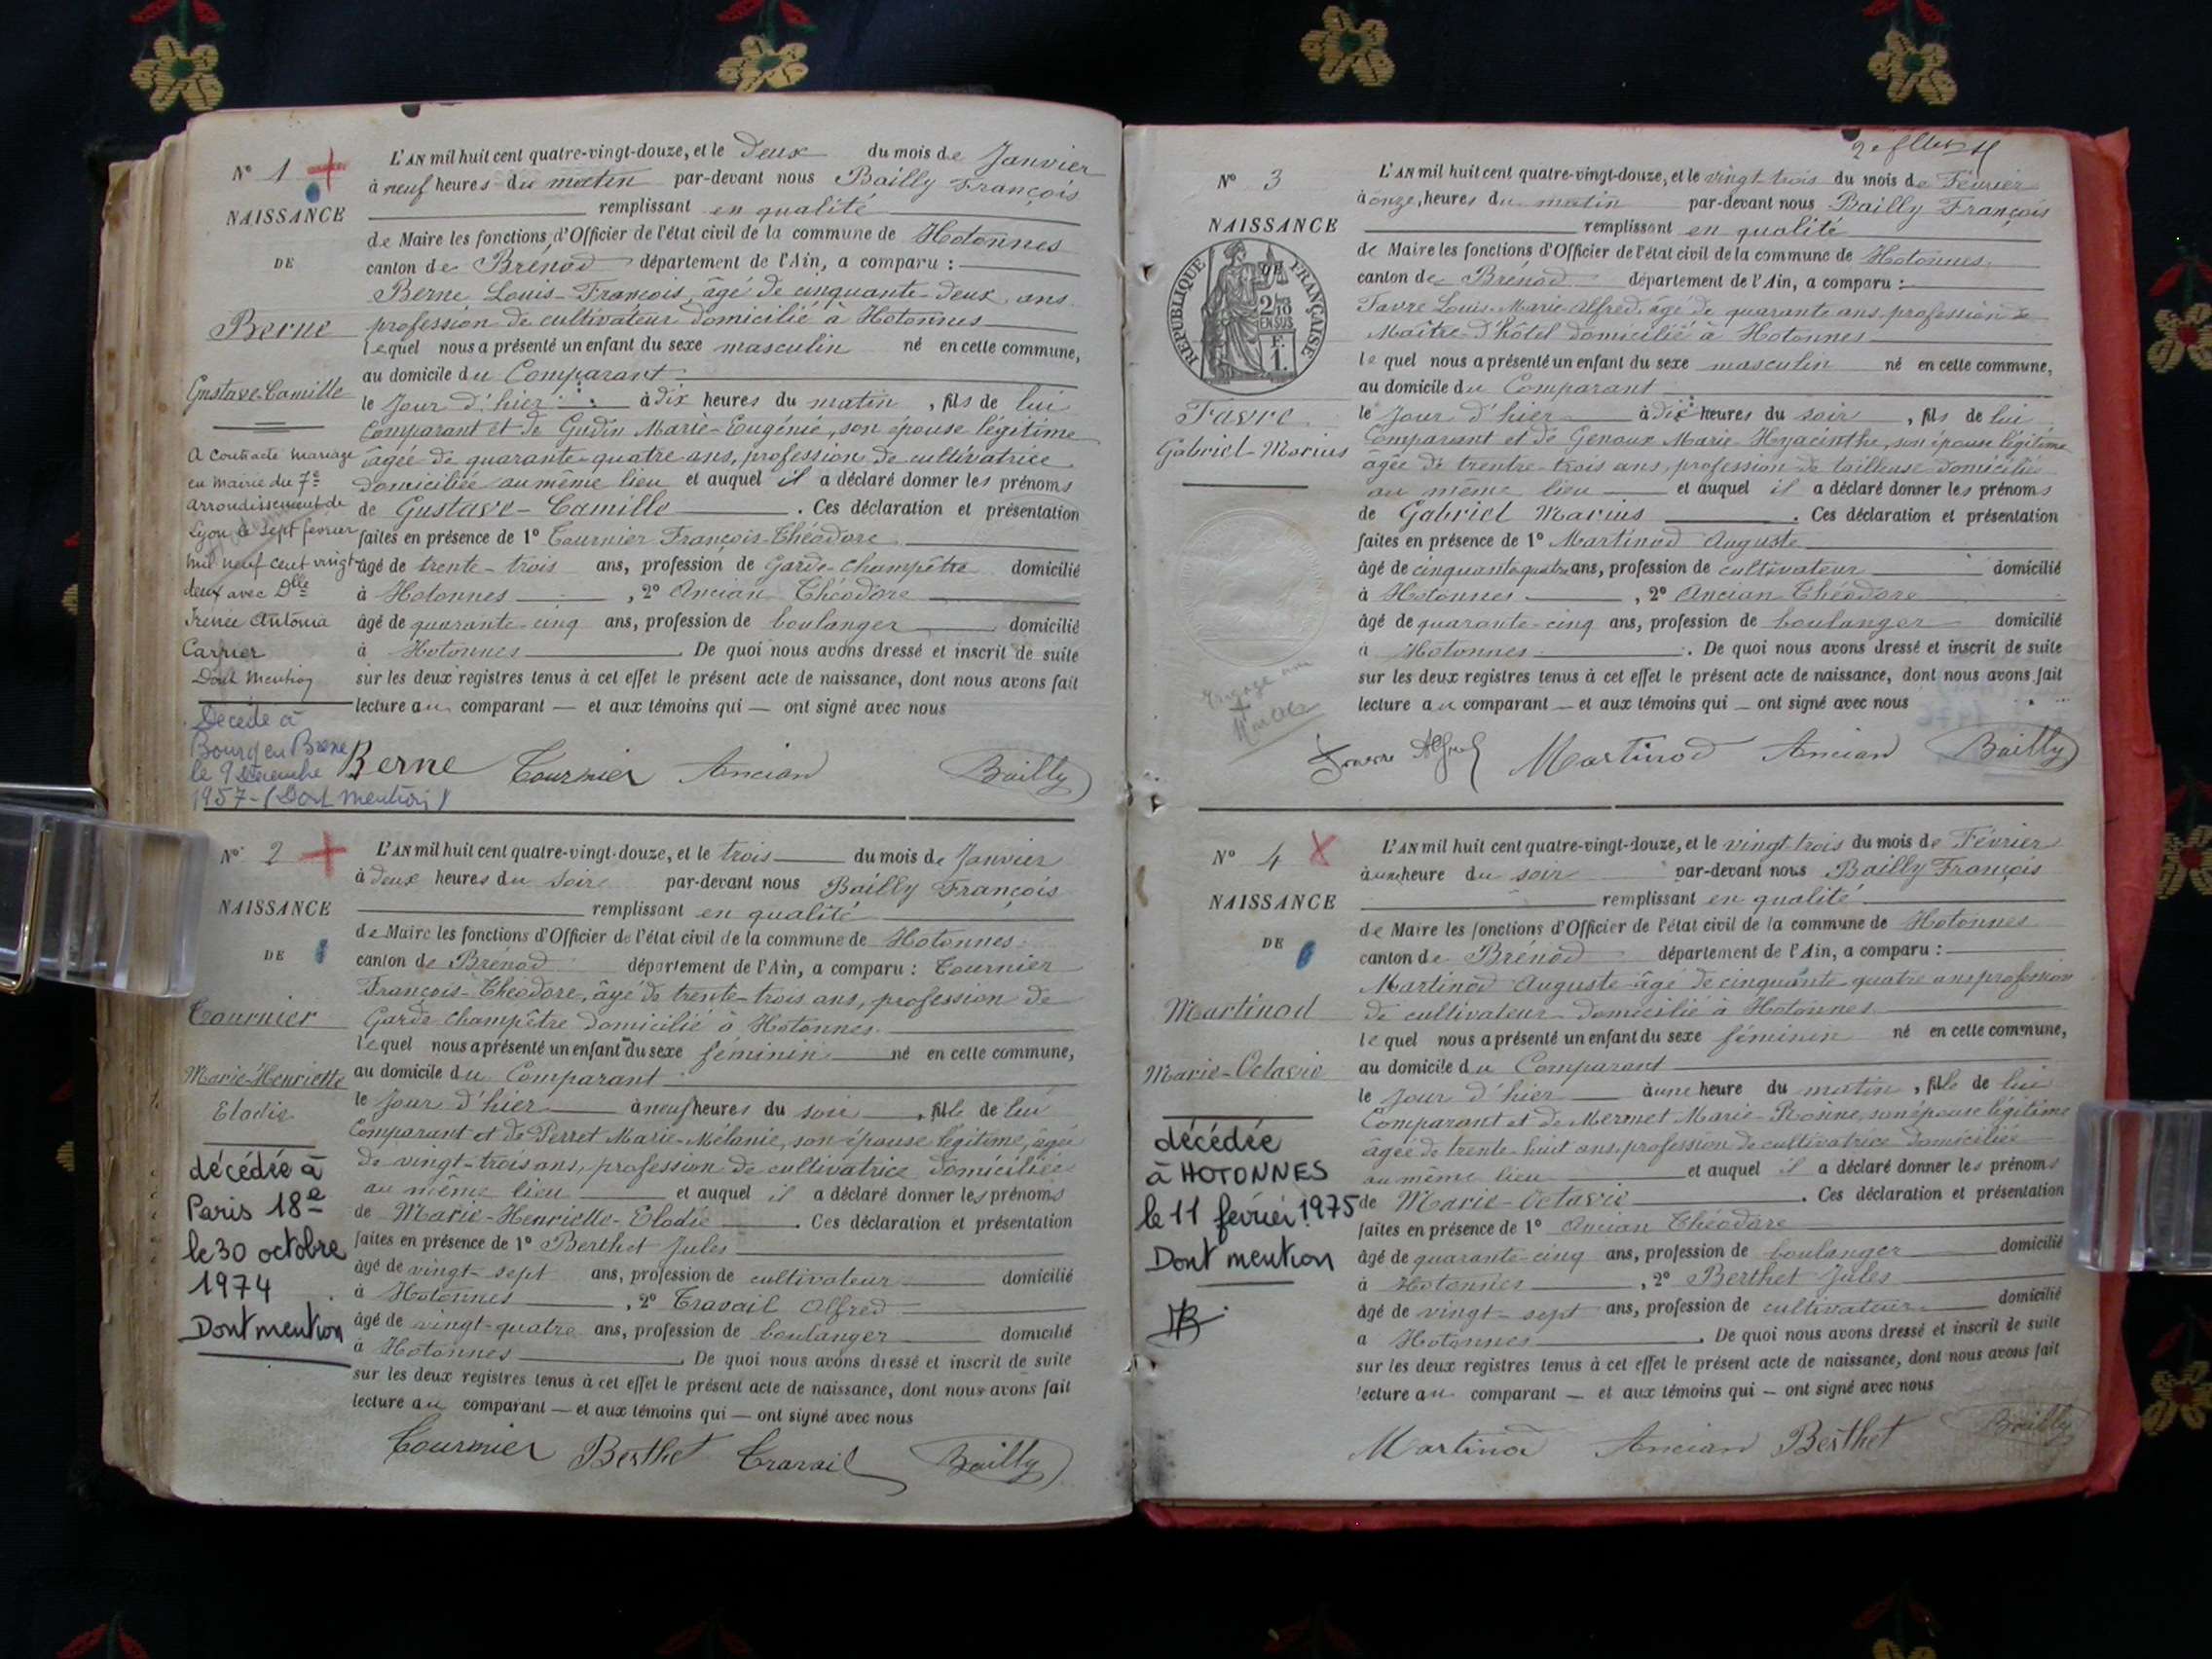 N° 1
NAISSANCE
DE
Berne
Gustave-Camille
A contracté mariage
en mairie du 7e
arrondissement de
Lyon le sept février
mil neuf cent vingt
deux avec Dlle
Irénée Antonia
Carrier
Dont mention
Décédé à
Bourg en Bresse
le 9 Décembre
1957 - (Dont mention)
L'AN mil huit cent quatre-vingt-douze, et le deux du mois de Janvier
à neuf heures du matin par-devant nous Bailly François
remplissant en qualité
de Maire les fonctions d'Officier de l'état civil de la commune de Hotonnes
canton de Brénod département de l'Ain, a comparu :
Berne Louis-François, âgé de cinquante-deux ans
profession de cultivateur domicilié à Hotonnes
lequel nous a présenté un enfant du sexe masculin né en cette commune,
au domicile du Comparant
le Jour d'hier à dix heures du matin, fils de lui
Comparant et de Gudin Marie-Eugénie, son épouse légitime
âgée de quarante-quatre ans, profession de cultivatrice
domiciliée au même lieu et auquel il a déclaré donner les prénoms
de Gustave-Camille. Ces déclaration et présentation
faites en présence de 1° Tournier François-Théodore
âgé de trente-trois ans, profession de Garde-champêtre domicilié
à Hotonnes, 2° Ancian Théodore
âgé de quarante-cinq ans, profession de boulanger domicilié
à Hotonnes. De quoi nous avons dressé et inscrit de suite
sur les deux registres tenus à cet effet le présent acte de naissance, dont nous avons fait
lecture au comparant — et aux témoins qui — ont signé avec nous
Berne Tournier Ancian Bailly
N° 2
NAISSANCE
DE
Tournier
Marie-Henriette
Elodie
décédée à
Paris 18e
le 30 octobre
1974
Dont mention
L'AN mil huit cent quatre-vingt-douze, et le trois du mois de Janvier
à deux heures du soir par-devant nous Bailly François
remplissant en qualité
de Maire les fonctions d'Officier de l'état civil de la commune de Hotonnes
canton de Brénod département de l'Ain, a comparu : Tournier
François-Théodore, âgé de trente-trois ans, profession de
Garde champêtre domicilié à Hotonnes
lequel nous a présenté un enfant du sexe féminin né en cette commune,
au domicile du Comparant
le Jour d'hier à neuf heures du soir, fille de lui
Comparant et de Perret Marie-Mélanie, son épouse légitime, âgée
de vingt-trois ans, profession de cultivatrice domiciliée
au même lieu et auquel il a déclaré donner les prénoms
de Marie-Henriette-Elodie. Ces déclaration et présentation
faites en présence de 1° Berthet Jules
âgé de vingt-sept ans, profession de cultivateur domicilié
à Hotonnes, 2° Travail Alfred
âgé de vingt-quatre ans, profession de boulanger domicilié
à Hotonnes. De quoi nous avons dressé et inscrit de suite
sur les deux registres tenus à cet effet le présent acte de naissance, dont nous avons fait
lecture au comparant — et aux témoins qui — ont signé avec nous
Tournier Berthet Travail Bailly
N° 3
NAISSANCE
DE
RÉPUBLIQUE FRANÇAISE
2/10
EN SUS
F.
1.
Favre
Gabriel-Marius
L'AN mil huit cent quatre-vingt-douze, et le vingt-trois du mois de Février
à onze heures du matin par-devant nous Bailly François
remplissant en qualité
de Maire les fonctions d'Officier de l'état civil de la commune de Hotonnes
canton de Brénod département de l'Ain, a comparu :
Favre Louis-Marie-Alfred, âgé de quarante ans, profession de
Maître-d'hôtel domicilié à Hotonnes
lequel nous a présenté un enfant du sexe masculin né en cette commune,
au domicile du Comparant
le Jour d'hier à dix heures du soir, fils de lui
Comparant et de Genoux Marie-Hyacinthe, son épouse légitime
âgée de trentre-trois ans, profession de tailleuse domiciliée
au même lieu et auquel il a déclaré donner les prénoms
de Gabriel Marius. Ces déclaration et présentation
faites en présence de 1° Martinod Auguste
âgé de cinquante quatre ans, profession de cultivateur domicilié
à Hotonnes, 2° Ancian Théodore
âgé de quarante-cinq ans, profession de boulanger domicilié
à Hotonnes. De quoi nous avons dressé et inscrit de suite
sur les deux registres tenus à cet effet le présent acte de naissance, dont nous avons fait
lecture au comparant — et aux témoins qui — ont signé avec nous
Favre Alfred Martinod Ancian Bailly
N° 4
NAISSANCE
DE
Martinod
Marie-Octavie
décédée
à HOTONNES
le 11 février 1975
Dont mention
L'AN mil huit cent quatre-vingt-douze, et le vingt-trois du mois de Février
à une heure du soir par-devant nous Bailly François
remplissant en qualité
de Maire les fonctions d'Officier de l'état civil de la commune de Hotonnes
canton de Brénod département de l'Ain, a comparu :
Martinod Auguste âgé de cinquante-quatre ans profession
de cultivateur domicilié à Hotonnes
lequel nous a présenté un enfant du sexe féminin né en cette commune,
au domicile du Comparant
le Jour d'hier à une heure du matin, fille de lui
Comparant et de Mermet Marie-Rosine, son épouse légitime
âgée de trente-huit ans, profession de cultivatrice domiciliée
au même lieu et auquel il a déclaré donner les prénoms
de Marie-Octavie. Ces déclaration et présentation
faites en présence de 1° Ancian Théodore
âgé de quarante-cinq ans, profession de boulanger domicilié
à Hotonnes, 2° Berthet Jules
âgé de vingt-sept ans, profession de cultivateur domicilié
à Hotonnes. De quoi nous avons dressé et inscrit de suite
sur les deux registres tenus à cet effet le présent acte de naissance, dont nous avons fait
lecture au comparant — et aux témoins qui — ont signé avec nous
Martinod Ancian Berthet Bailly